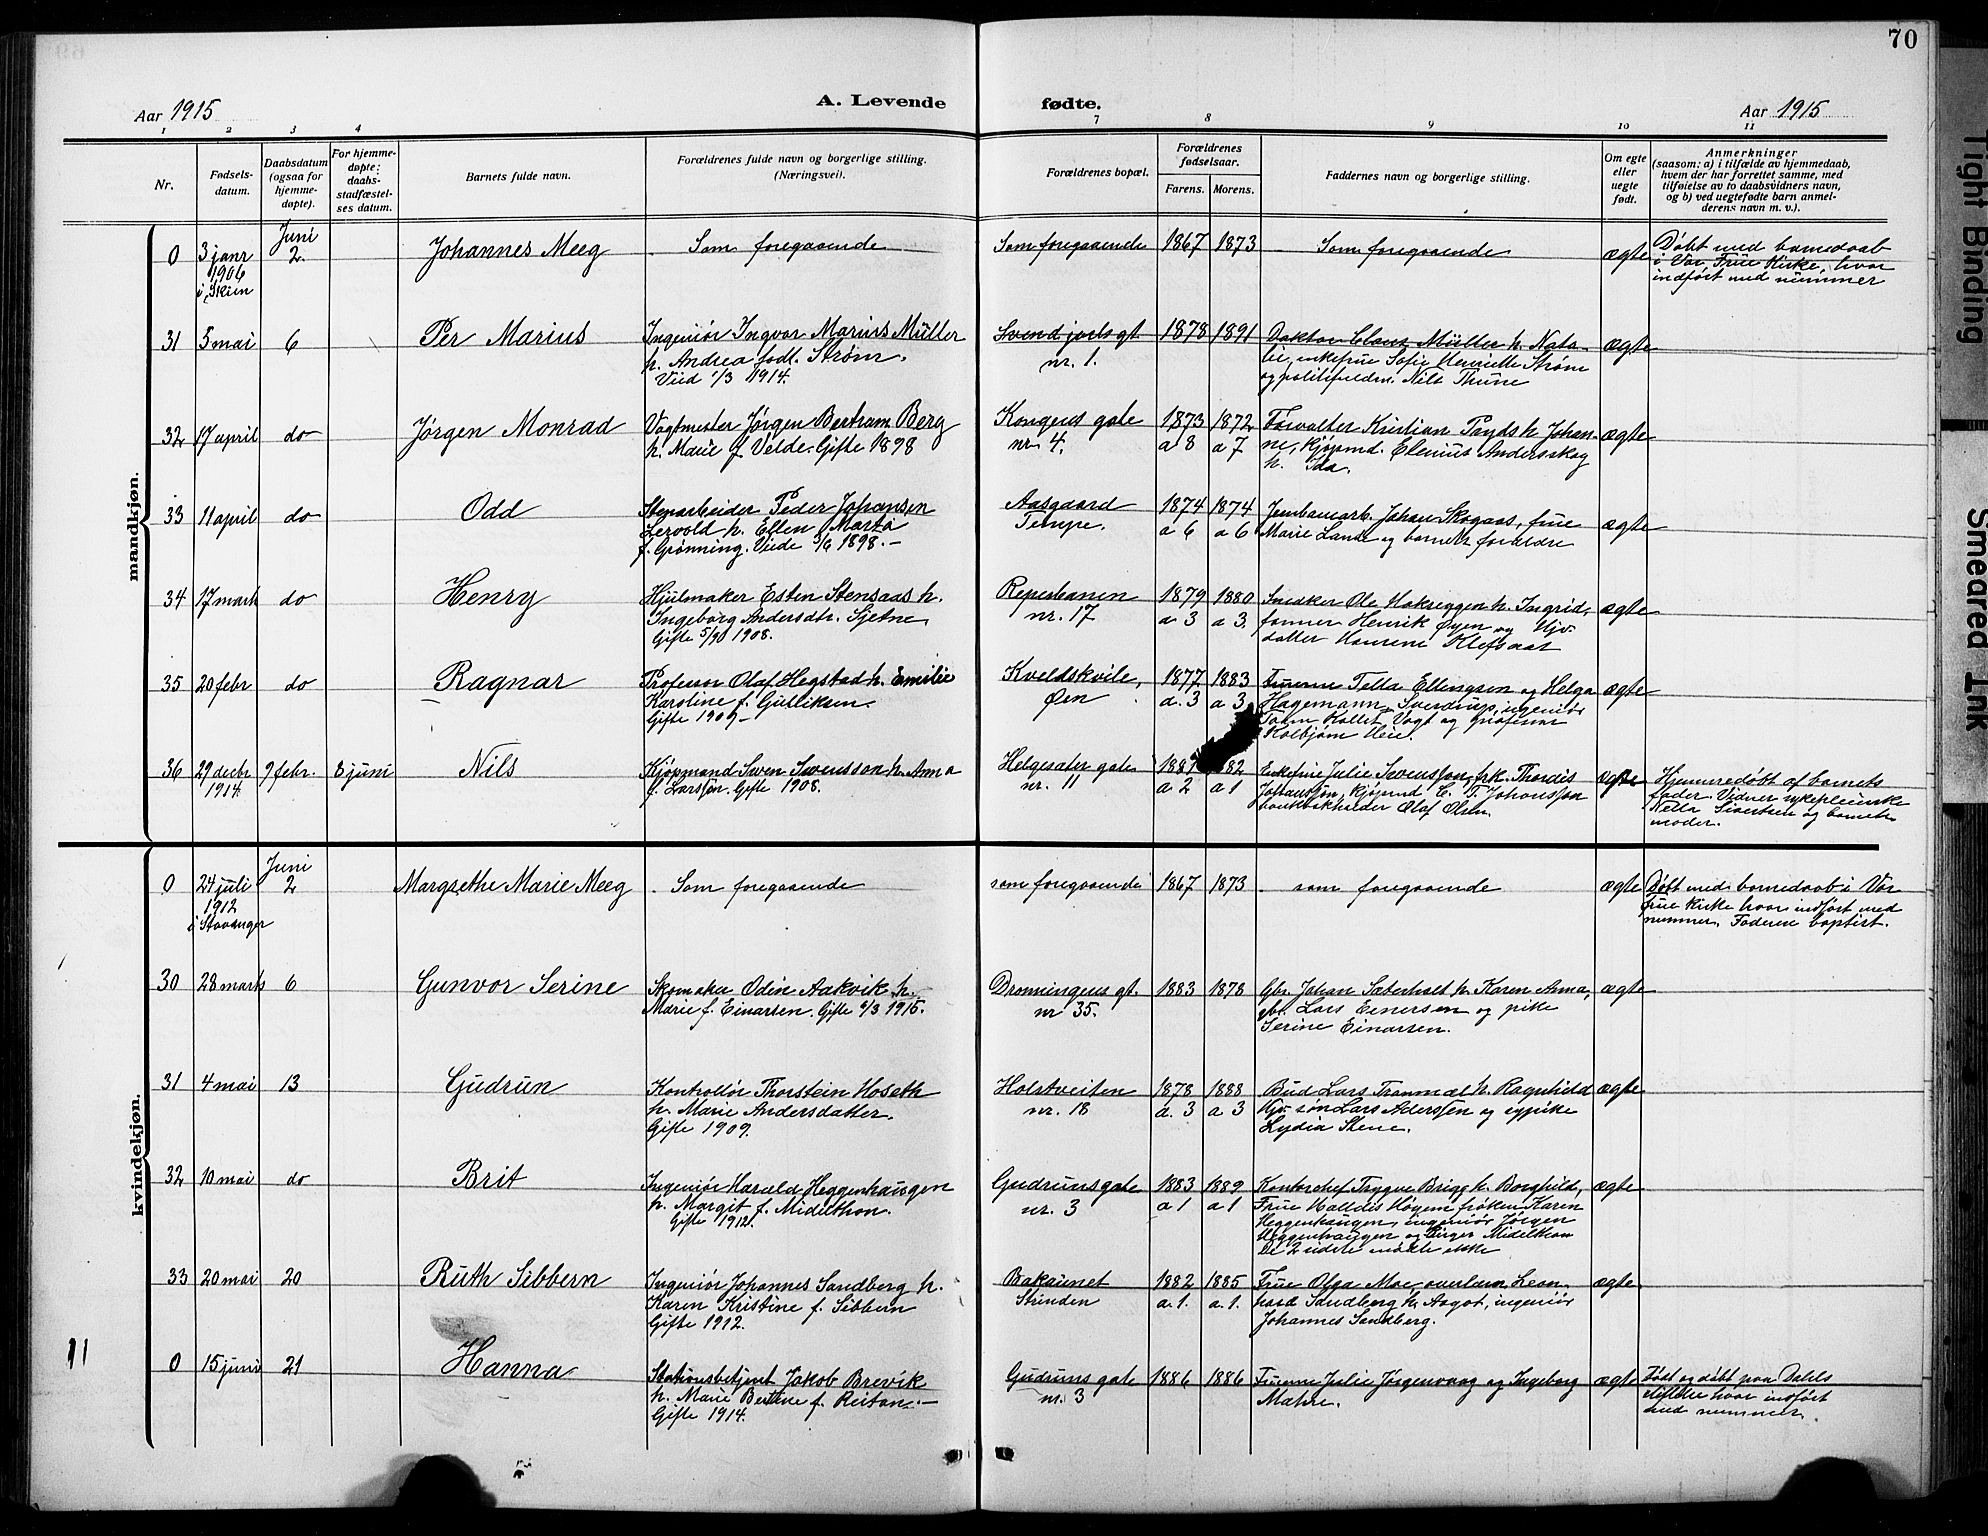 70
Aar 1915
A. Levende fødte.
Aar 1915
1 2 3 4 7 8 9 10 11
Nr.
Fødsels-
datum.
Daabsdatum
(ogsaa for
hjemme-
døpte).
For hjemme-
døpte:
daabs-
stadfæstel-
ses datum.
Barnets fulde navn.
Forældrenes fulde navn og borgerlige stilling.
(Næringsvei).
Forældrenes bopæl.
Forældrenes
fødselsaar.
Farens. Morens.
Faddernes navn og borgerlige stilling.
Om egte
eller
uegte
født.
Anmerkninger
(saasom: a) i tilfælde av hjemmedaab,
hvem der har forrettet samme, med
tilføielse av to daabsvidners navn,
og b) ved uegtefødte barn anmel-
derens navn m. v.).
mandkjøn.
0 3 janr 1906 i Skien
Juni 2
Johannes Meeg
Som foregaaende
Som foregaaende
1867 1873
Som foregaaende
ægte
Døbt med barnedaab
i Vor Frue Kirke, hvor
indført med nummer
31 5 mai 6
Per Marius
Ingeniør Ingvar Marius Müller
h. Andrea født Strøm.
Viid 1/3 1914.
Svend jarls gt.
nr. 1.
1878 1891
Doktor Claus Müller h. Nata-
lie, enkefrue Sofie Henriette Strøm
og politifuldm. Nils Thune
ægte
32 17 april do
Jørgen Monrad
Vagtmester Jørgen Bertram Berg
h. Marie f. Velde. Gifte 1898
Kongens gate
nr. 4.
1873 1872
a 8 a 7
Forvalter Kristian Pryds h. Johan-
ne, kjøpmd. Elenius Andersskog
h. Ida.
ægte
33 11 april do
Odd
Stenarbeider Peder Johansen
Lervold h. Ellen Marta
f. Grønning. Viede 3/6 1898.-
Aasgaard
Tempe.
1874 1874
a 6 a 6
Jernbanearb. Johan Skogaas, frue
Marie Lanse og barnets forældre
ægte
34 17 marts do
Henry
Hjulmaker Esten Stensaas h.
Ingeborg Andersdtr. Sjetne
Gifte 5/10 1908.
Reperbanen
nr. 17
1879 1880
a 3 a 3.
Snedker Ole Hoksreggen h. Ingrid,
former Henrik Øyen og Gjv.
datter Hansine Klefsaas
ægte
35 20 febr do
Ragnar
Professor Olaf Hegstad h. Emilie
Karoline f. Gulliksen
Gifte 1909-
Kveldskvile,
Øen
1877 1883
a. 3 a 3
Fruerne Tella Ellingsen og Helga
Hagemann Sverdrup, ingeniør
Vogt og professor
Kolbjørn Heie.
ægte
36 29 decbr 1914 9 febr. 8 juni
Nils
Kjøpmand Swen Swensson h. Anna
f. Larsson. Gifte 1908.
Helgesæter gate
nr. 11
a. 2 a 1
Enkefrue Julie Svensson, frk. Thordis
Johansson, kjøpmd C. T. Johansson
bankbokholder Olaf Olsen.
ægte
Hjemmedøbt af barnets
fader. Vidner sykepleierske
Sivertsen og barnets
moder.
kvindekjøn.
0 24 juli 1912 i Stavanger
Juni 2
Margrethe Marie Meeg
Som foregaaende
som foregaaende
1867 1873
som foregaaende
ægte
Døbt med barnedaab i Vor
frue Kirke hvor indført med
nummer. Faderen baptist.
30 28 marts 6
Gunvor Serine
Skomaker Odin Aakvik h.
Marie f. Einarsen. Gifte 6/3 1915.
Dronningens gt.
nr 35.
1883 1878
Gbr. Johan Sæterholt h. Karen Anna,
gbr. Lars Einersen og pike
Serine Einarsen.
ægte
31 4 mai 13
Gudrun
Kontrollør Thorstein Hoseth
h. Marie Andersdatter.
Gifte 1909.
Holstveiten
nr. 18
1878 1888
a. 3 a 3
Bud Lars Tranmæl h. Ragnhild
Gjv. søn Lars Aderssen og sypike
Lydia Stene.
ægte
32 10 mai do
Brit
Ingeniør Harald Heggenhaugen
h. Margit f. Midelthon.
Gifte 1912.
Gudrunsgate
nr. 3
1883 1889
a 1 a 1
Kontorchef Trygve Brigg h. Borghild,
Frue Halldis Høyem frøken Karen
Heggenhaugen, ingeniør Jørgen
Heggenhaugen og Birger Midelthon
De 2 sidste møtte ikke
ægte
33 20 mai 20
Ruth Sibbern
Ingeniør Johannes Sandberg h.
Karen Kristine f. Sibbern
Gifte 1912.
Bakaunet
Strinden
1882 1885
a. 1. a. 1.
Frue Olga Moe, overlærer Leon-
hard Sandberg h. Aagot, ingeniør
Johannes Sandberg.
ægte
11
0 15 juni 21
Hanna
Stationsbetjent Jakob Brevik
h. Marie Bertine f. Reitan.-
Gifte 1914.
Gudruns gate
nr. 3
1886 1886
Fruerne Julie Jørgenvaag og Ingeborg
Mahre.
ægte
Født og døbt paa Dahls
stiftelse hvor indført
med nummer.
Tight Binding
Smeared Ink